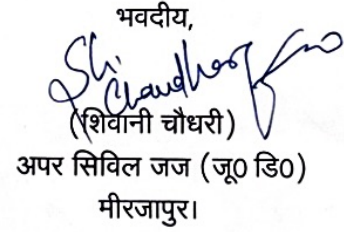 भवदीय,
Sh. Chaudhary
(शिवानी चौधरी)
अपर सिविल जज (जू0 डि0)
मीरजापुर।